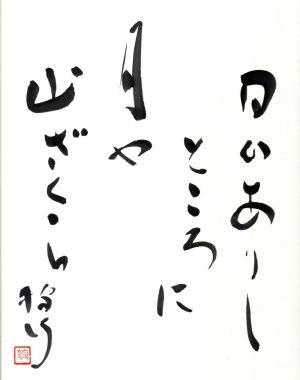 日のありし
ところに
月や
山ざくら
狩行